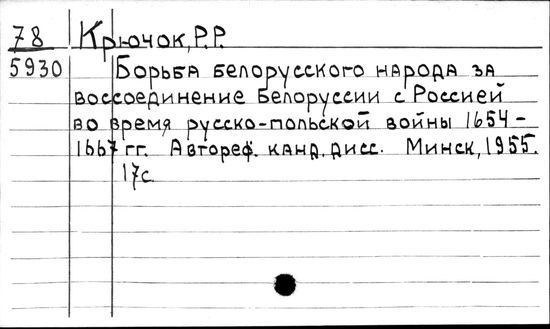 78 Крючок, Р.Р.
5930 Борьба белорусского народа за
воссоединение Белоруссии с Россией
во время русско-польской войны 1654-
1667 гг. Автореф. канд. дисс. Минск, 1955.
17с.